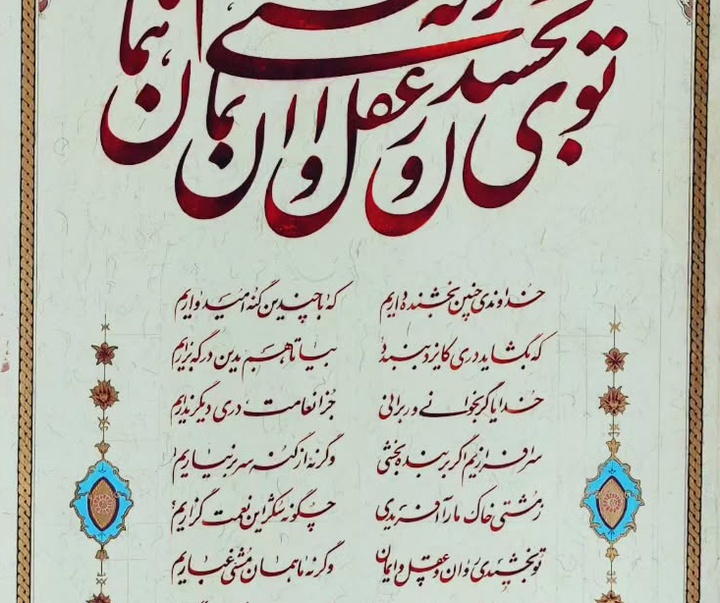 تو بخشیدی روان و عقل و ایمان همان
خداوندی چنین بخشنده داریم که با چندین گنه امیدواریم
که بگشاید دری کایزد ببندد بیا تا هم بدین درگه بزاریم
خدایا گر بخوانی ور برانی جز انعامت دری دیگر نداریم
سرافرازیم اگر بر بنده بخشی وگرنه از گنه سر برنیاریم
ز مشتی خاک ما را آفریدی چگونه شکر این نعمت گزاریم
تو بخشیدی روان و عقل و ایمان وگرنه ما همان مشتی غباریم